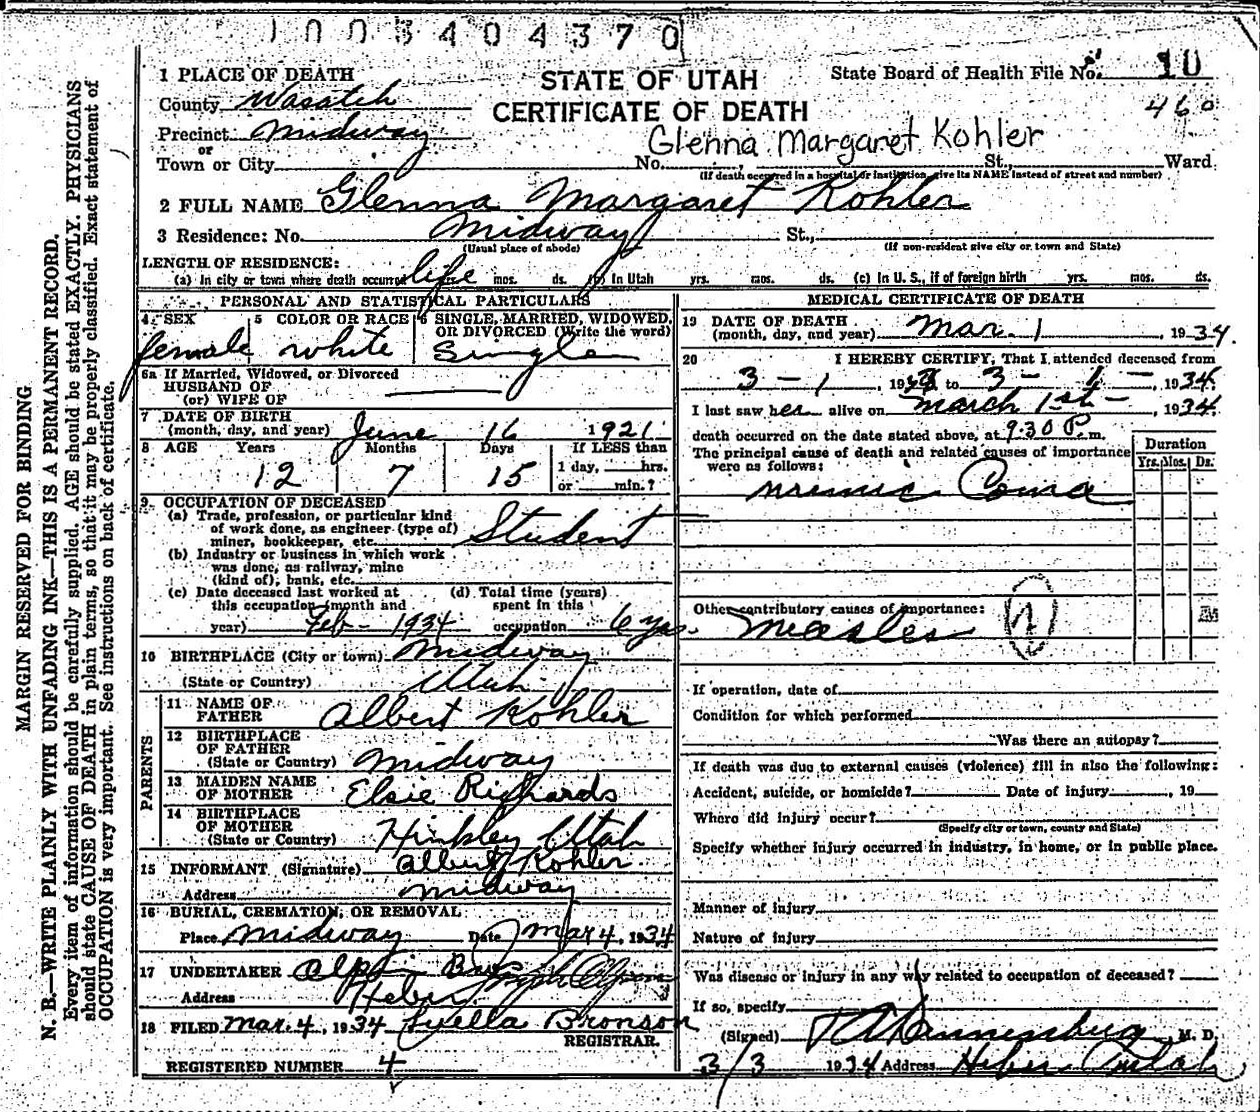 1003404370
1 PLACE OF DEATH
STATE OF UTAH
CERTIFICATE OF DEATH
State Board of Health File No. 10
460
County Wasatch
Precinct Midway
or
Glenna Margaret Kohler
Town or City No. St., Ward
(If death occurred in a hospital or institution, give its NAME instead of street and number)
2 FULL NAME Glenna Margaret Kohler
3 Residence: No. Midway St.,
(Usual place of abode) (If non-resident give city or town and State)
LENGTH OF RESIDENCE:
(a) In city or town where death occurred life yrs. mos. ds. (b) In Utah yrs. mos. ds. (c) In U. S., if of foreign birth yrs. mos. ds.
PERSONAL AND STATISTICAL PARTICULARS
4 SEX female
5 COLOR OR RACE white
6 SINGLE, MARRIED, WIDOWED, OR DIVORCED (Write the word) Single
6a If Married, Widowed, or Divorced
HUSBAND OF
(or) WIFE OF
7 DATE OF BIRTH
(month, day, and year) June 16 1921
8 AGE Years Months Days If LESS than
12 7 15 1 day, hrs.
or min.?
9 OCCUPATION OF DECEASED
(a) Trade, profession, or particular kind
of work done, as engineer (type of)
miner, bookkeeper, etc. Student
(b) Industry or business in which work
was done, as railway, mine
(kind of), bank, etc.
(c) Date deceased last worked at
this occupation (month and
year) Feb - 1934
(d) Total time (years)
spent in this
occupation 6 yrs.
10 BIRTHPLACE (City or town) Midway
(State or Country) Utah
PARENTS
11 NAME OF
FATHER Albert Kohler
12 BIRTHPLACE
OF FATHER
(State or Country) Midway
13 MAIDEN NAME
OF MOTHER Elsie Richards
14 BIRTHPLACE
OF MOTHER
(State or Country) Hinkley Utah
15 INFORMANT (Signature) Albert Kohler
Address Midway
16 BURIAL, CREMATION, OR REMOVAL
Place Midway Date Mar 4, 1934
17 UNDERTAKER
Address Heber
18 FILED Mar. 4, 1934 Luella Bronson
REGISTRAR.
REGISTERED NUMBER 4
MEDICAL CERTIFICATE OF DEATH
19 DATE OF DEATH
(month, day, and year) Mar. 1, 1934.
20 I HEREBY CERTIFY, That I attended deceased from
3 - 1, 19 to 3 - 1 -, 1934.
I last saw her alive on March 1st -, 1934.
death occurred on the date stated above, at 9:30 P. m.
The principal cause of death and related causes of importance
were as follows:
Duration
Yrs. Mos. Ds.
Coma
Other contributory causes of importance:
Measles
If operation, date of
Condition for which performed
Was there an autopsy?
If death was due to external causes (violence) fill in also the following:
Accident, suicide, or homicide? Date of injury, 19
Where did injury occur?
(Specify city or town, county and State)
Specify whether injury occurred in industry, in home, or in public place.
Manner of injury
Nature of injury
Was disease or injury in any way related to occupation of deceased?
If so, specify
(Signed) M. D.
3/3 1934 Address Heber Utah
MARGIN RESERVED FOR BINDING
N. B.—WRITE PLAINLY WITH UNFADING INK—THIS IS A PERMANENT RECORD.
Every item of information should be carefully supplied. AGE should be stated EXACTLY. PHYSICIANS
should state CAUSE OF DEATH in plain terms, so that it may be properly classified. Exact statement of
OCCUPATION is very important. See instructions on back of certificate.